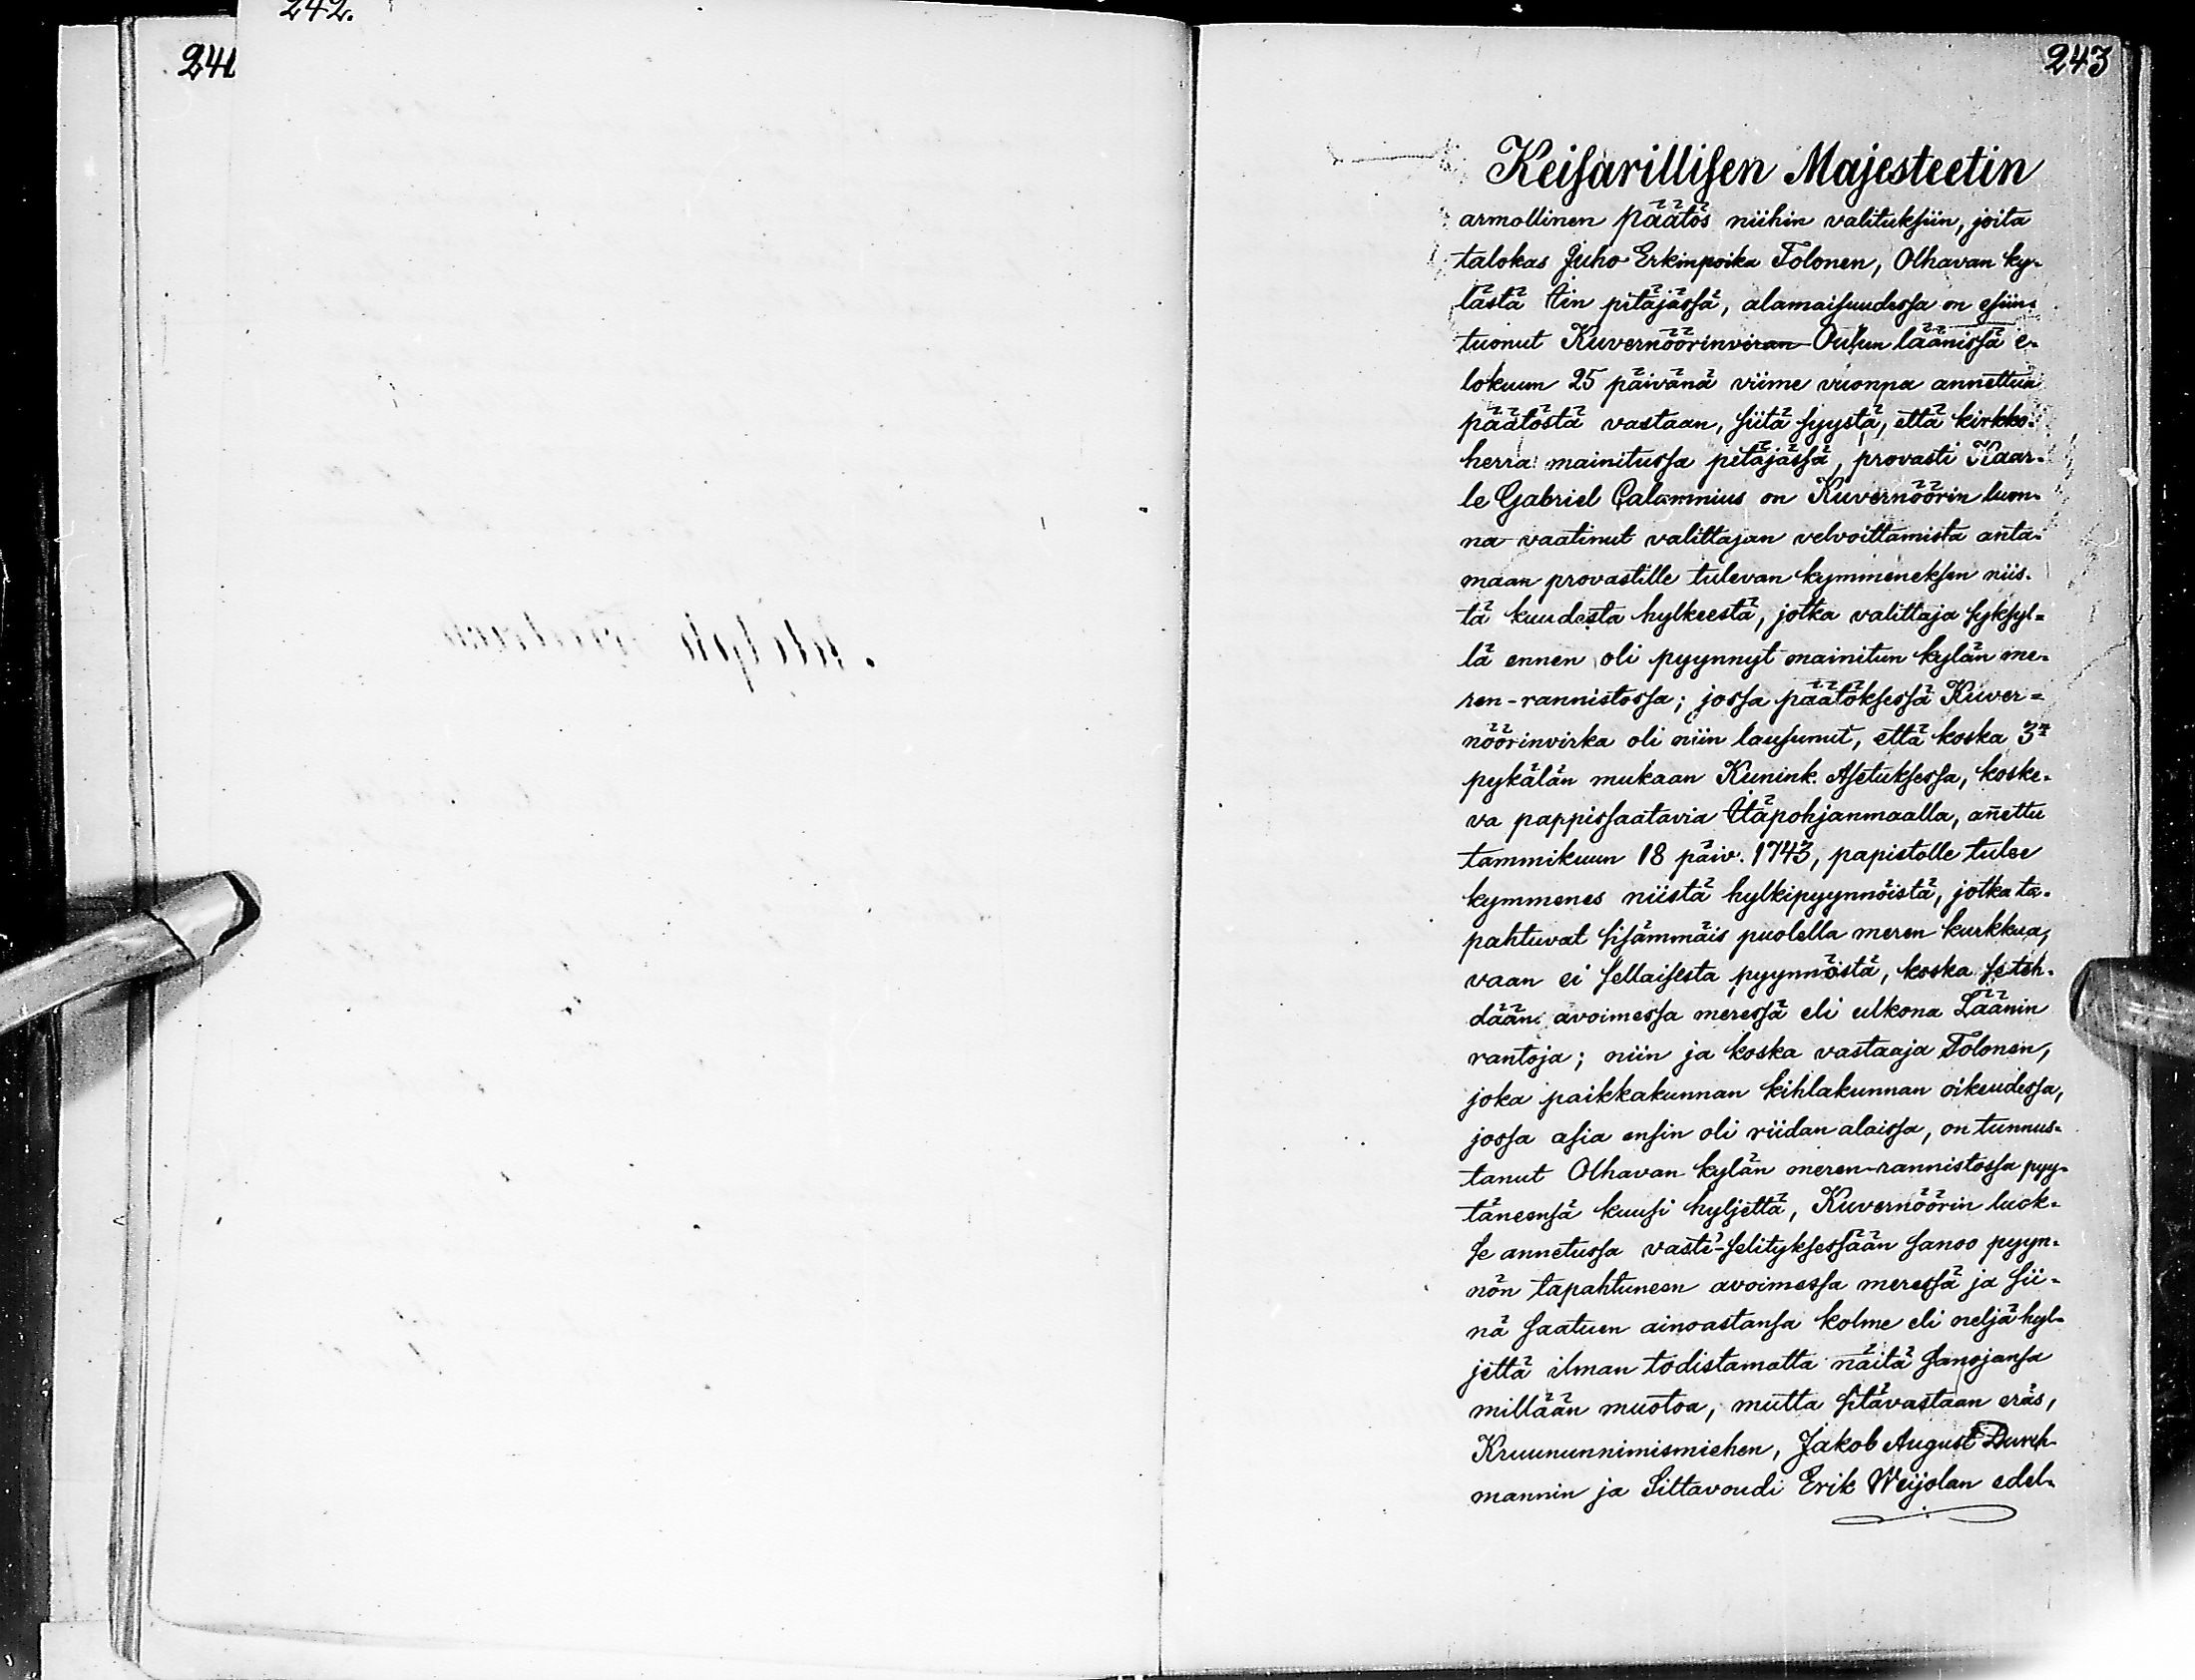 242.
241
243
Keisarillisen Majesteetin
armollinen päätös niihin valituksiin, joita
talokas Juho Erkinpoika Tolonen, Olhavan ky-
lästä Iin pitäjässä, alamaisuudessa on esiin-
tuonut Kuvernöörinviran Oulun läänissä e-
lokuun 25 päivänä viime vuonna annettua
päätöstä vastaan, siitä syystä, että kirkko-
herra mainitussa pitäjässä, provasti Kaar-
le Gabriel Calamnius on Kuvernöörin luon-
na vaatinut valittajan velvoittamista anta-
maan provastille tulevan kymmeneksen niis-
tä kuudesta hylkeestä, jotka valittaja syksyl-
lä ennen oli pyynnyt mainitun kylän me-
ren-rannistossa; jossa päätöksessä Kuver-
nöörinvirka oli niin lausunut, että koska 3n
pykälän mukaan Kunink. Asetuksessa, koske-
va pappissaatavia Itäpohjanmaalla, an̄ettu
tammikuun 18 päiv. 1743, papistolle tulee
kymmenes niistä hylkipyynnöistä, jotka ta-
pahtuvat sisämmäis puolella meren kurkkua,
vaan ei sellaisesta pyynnöstä, koska se teh-
dään avoimessa meressä eli ulkona Läänin
rantoja; niin ja koska vastaaja Tolonen,
joka paikkakunnan kihlakunnan oikeudessa,
jossa asia ensin oli riidan alaissa, on tunnus-
tanut Olhavan kylän meren-rannistossa pyy-
täneensä kuusi hyljettä, Kuvernöörin luok-
se annetussa vasti-selityksessään sanoo pyyn-
nön tapahtuneen avoimessa meressä ja sii-
nä saatuen ainoastansa kolme eli neljä hyl-
jettä ilman todistamatta näitä sanojansa
millään muotoa, mutta sitävastaan eräs,
Kruununnimismiehen, Jakob August Durch-
mannin ja Siltavoudi Erik Weijolan edel-